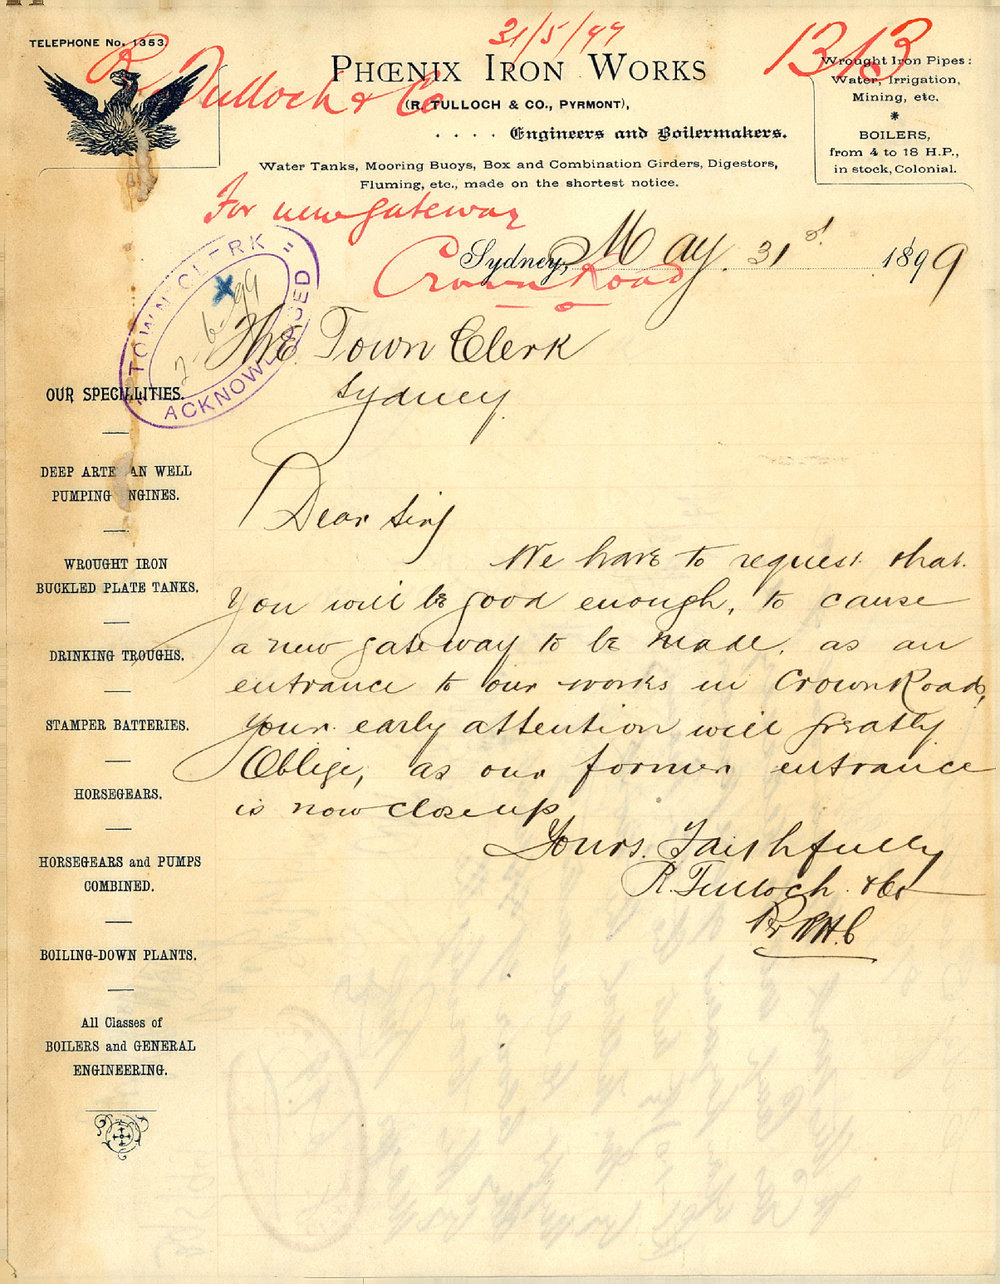 TELEPHONE No. 1353.
31/5/99
R Tulloch & Co
PHŒNIX IRON WORKS
(R. TULLOCH & CO., PYRMONT),
.... Engineers and Boilermakers.
Water Tanks, Mooring Buoys, Box and Combination Girders, Digestors,
Fluming, etc., made on the shortest notice.
Wrought Iron Pipes:
Water, Irrigation,
Mining, etc.
*
BOILERS,
from 4 to 18 H.P.,
in stock, Colonial.
For new gateway
Crown Road
Sydney, May 31st 1899
TOWN CLERK
2-6-99
ACKNOWLEDGED
The Town Clerk
Sydney
Dear Sir,
We have to request that
you will be good enough, to cause
a new gateway to be made, as an
entrance to our works in Crown Road,
Your early attention will greatly
Oblige, as our former entrance
is now close up
Yours Faithfully
R. Tulloch & Co
OUR SPECIALITIES.
DEEP ARTESIAN WELL
PUMPING ENGINES.
WROUGHT IRON
BUCKLED PLATE TANKS.
DRINKING TROUGHS.
STAMPER BATTERIES.
HORSEGEARS.
HORSEGEARS and PUMPS
COMBINED.
BOILING-DOWN PLANTS.
All Classes of
BOILERS and GENERAL
ENGINEERING.